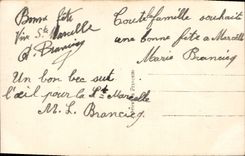 Bonne fête
Vive Ste Marcelle
Toute la famille souhait
une bonne fête a Marcelle
Marie Brancieq
Un bon bec sur
l'œil pour la Ste Marcelle
M. L. Brancieq